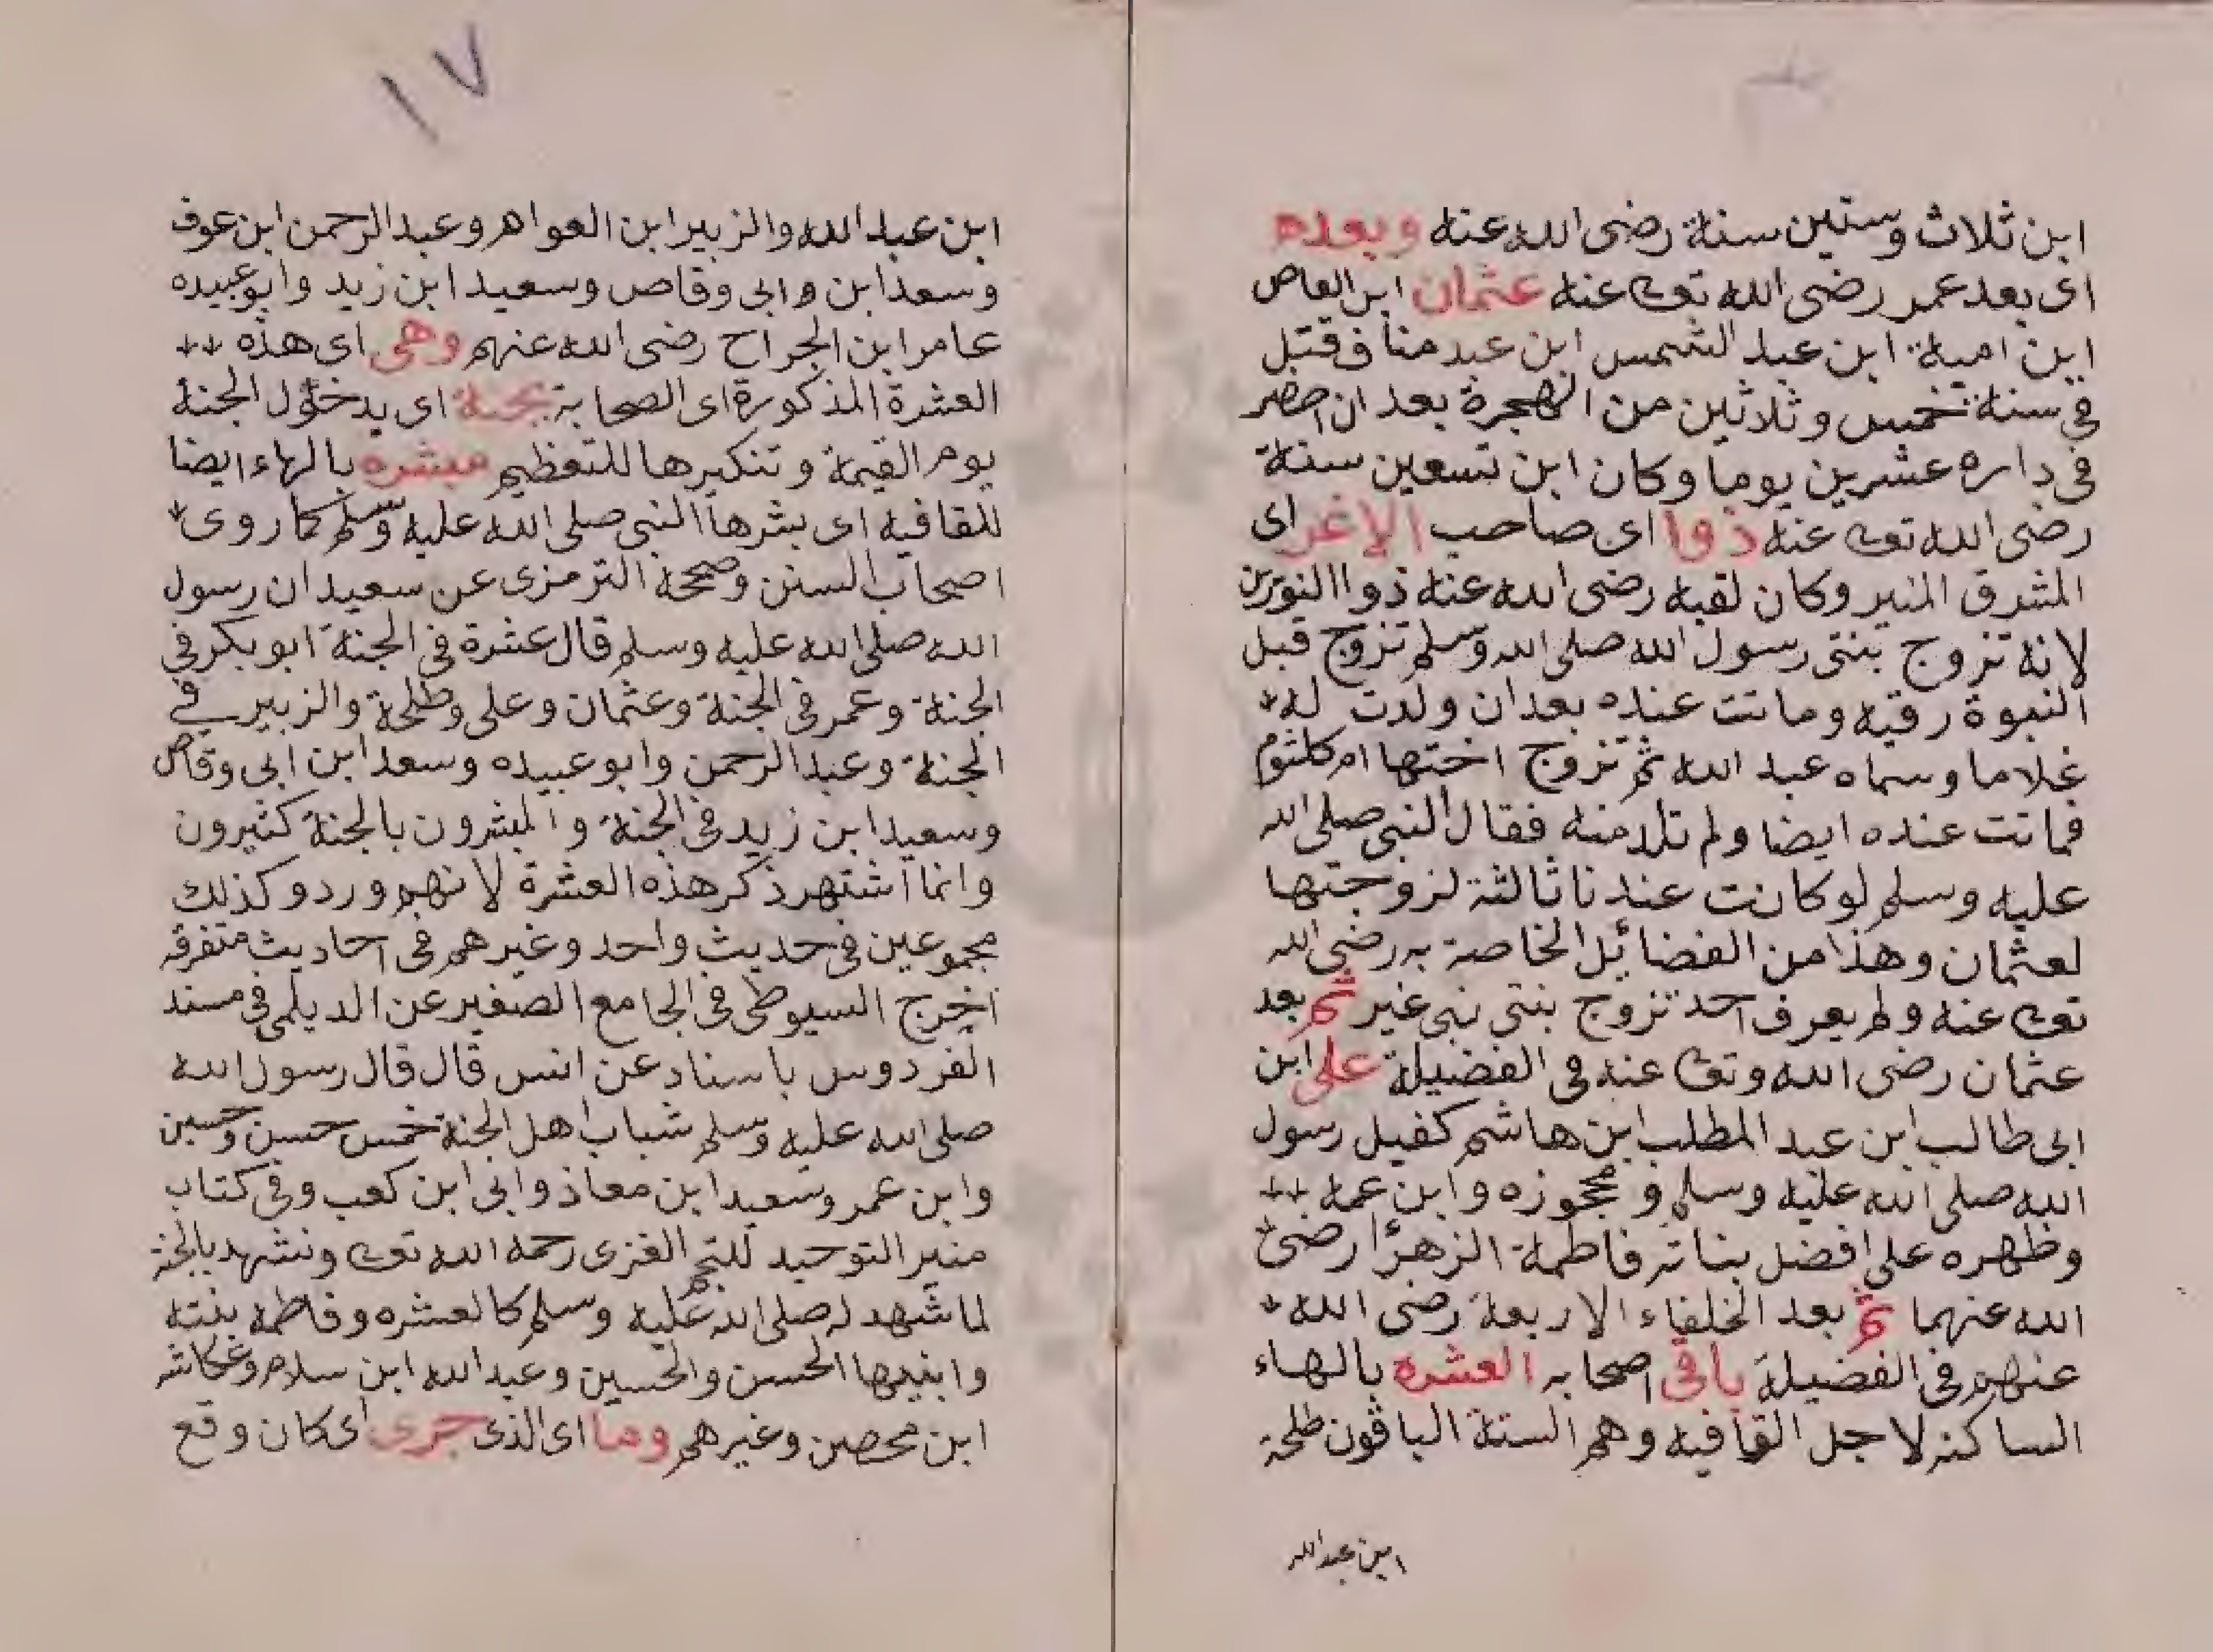 ابن ثلاث وستين سنة رضى الله عنه وبعده
اى بعد عمر رضى الله تعـ عنه عثمان ابن العاص
ابن امية ابن عبد الشمس ابن عبد مناف قتل
فى سنة خمس وثلاثين من الهجرة بعد ان احصر
فى داره عشرين يوما وكان ابن تسعين سنة
رضى الله تعـ عنه ذوا اى صاحب الاغر اى
المشرق المنير وكان لقبه رضى الله عنه ذوا النورين
لانه تزوج بنتى رسول الله صلى الله وسلم تزوج قبل
النبوة رقيه وماتت عنده بعد ان ولدت له
غلاما وسماه عبد الله ثم تزوج اختها ام كلثوم
فماتت عنده ايضا ولم تلد منه فقال النبى صلى الله
عليه وسلم لو كانت عندنا ثالثة لزوجتها
لعثمان وهذا من الفضائل الخاصة به رضى الله
تعـ عنه ولم يعرف احد تزوج بنتى نبى غير ثم بعد
عثمان رضى الله وتعـ عنه فى الفضيلة على ابن
ابى طالب ابن عبد المطلب ابن هاشم كفيل رسول
الله صلى الله عليه وسلم و وابن عمه
وظهره على افضل بناته فاطمة الزهرا رضى
الله عنهما ثم بعد الخلفاء الاربعة رضى الله
عنهم فى الفضيلة باقى اصحابه العشره بالهاء
الساكنه لاجل القافيه وهم الستة الباقون طلحة
ابن عبد الله
١٧
ابن عبد الله والزبير ابن العوام وعبد الرحمن ابن عوف
وسعد ابن وابى وقاص وسعيد ابن زيد وابو عبيده
عامر ابن الجراح رضى الله عنهم وهى اى هذه
العشرة المذكورة اى الصحابة بجنة اى بدخول الجنة
يوم القيمة وتنكيرها للتعظيم مبشره بالهاء ايضا
للقافيه اى بشرها النبى صلى الله عليه وسلم كما روى
اصحاب السنن وصححه الترمزى عن سعيد ان رسول
الله صلى الله عليه وسلم قال عشرة فى الجنة ابو بكر فى
الجنة وعمر فى الجنة وعثمان وعلى وطلحة والزبير فى
الجنة وعبد الرحمن وابو عبيده وسعد ابن ابى وقاص
وسعيد ابن زيد فى الجنة والمبشرون بالجنة كثيرون
وانما اشتهر ذكر هذه العشرة لانهم وردو كذلك
مجموعين فى حديث واحد وغيرهم فى احاديث متفرقه
اخرج السيوطى فى الجامع الصغير عن الديلمى فى مسند
الفردوس باسناد عن انس قال قال رسول الله
صلى الله عليه وسلم شباب اهل الجنة خمس حسن وحسين
وابن عمر وسعيد ابن معاذ وابى ابن كعب وفى كتاب
منير التوحيد للنجم الغزى رحمه الله تعـ ونشهد بالجنة
لما شهد له صلى الله عليه وسلم كالعشره وفاطمه بنته
وابنيها الحسن والحسين وعبد الله ابن سلام وعكاشه
ابن محصن وغيرهم وما اى الذى جرى اى كان وقع